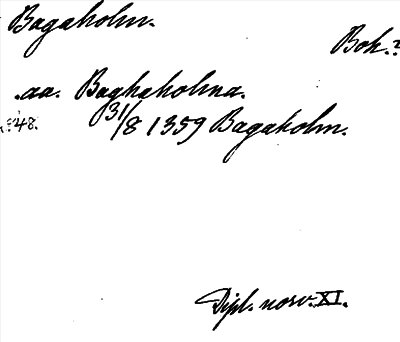 Bagaholm.
Boh.?
.aa. Baghaholma.
:48. 31/8 1359 Bagaholm.
Dipl. norv. XI.